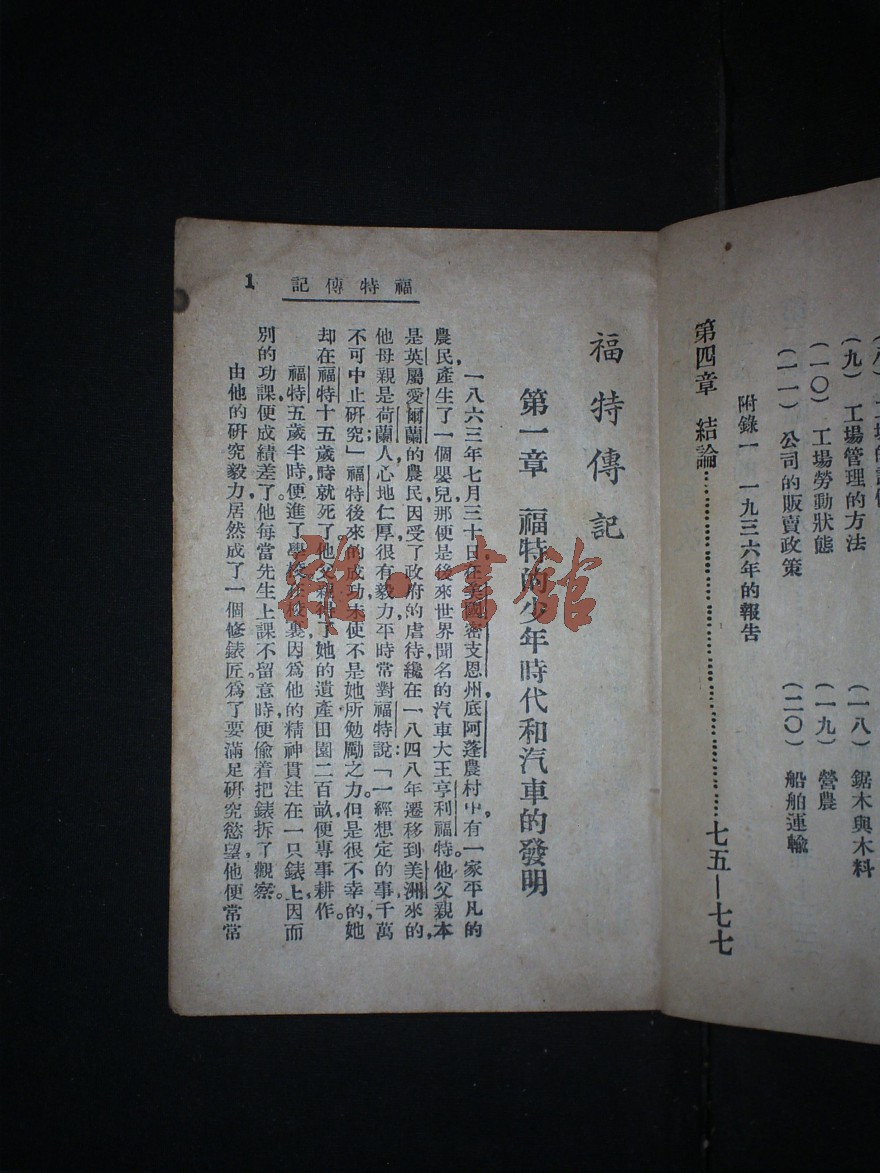 （九）工場管理的方法　（一八）鋸木與木料
（一〇）工場勞動狀態　（一九）營農
（一一）公司的販賣政策　（二〇）船舶運輸
附錄一　一九三六年的報告
第四章　結論……七五—七七
福特傳記
1
福特傳記
第一章　福特的少年時代和汽車的發明
一八六三年七月三十日，在美國密支恩州底阿蓬農村中，有一家平凡的
農民，產生了一個嬰兒，那便是後來世界聞名的汽車大王亨利福特。他父親本
是英屬愛爾蘭的農民，因受了政府的虐待，纔在一八四八年遷移到美洲來的，
他母親是荷蘭人，心地仁厚，很有毅力，平時常對福特說：「一經想定的事，千萬
不可中止研究」福特後來的成功，未使不是她所勉勵之力。但是很不幸的，她
却在福特十五歲時就死了，他父親得了她的遺產田園二百畝，便專事耕作。
福特五歲半時，便進了學校，在校裏，因爲他的精神貫注在一只錶上，因而
別的功課便成績差了，他每當先生上課不留意時，便偷着把錶拆了觀察。
由他的研究毅力，居然成了一個修錶匠。爲了要滿足研究慾望，他便常常
雅·書館